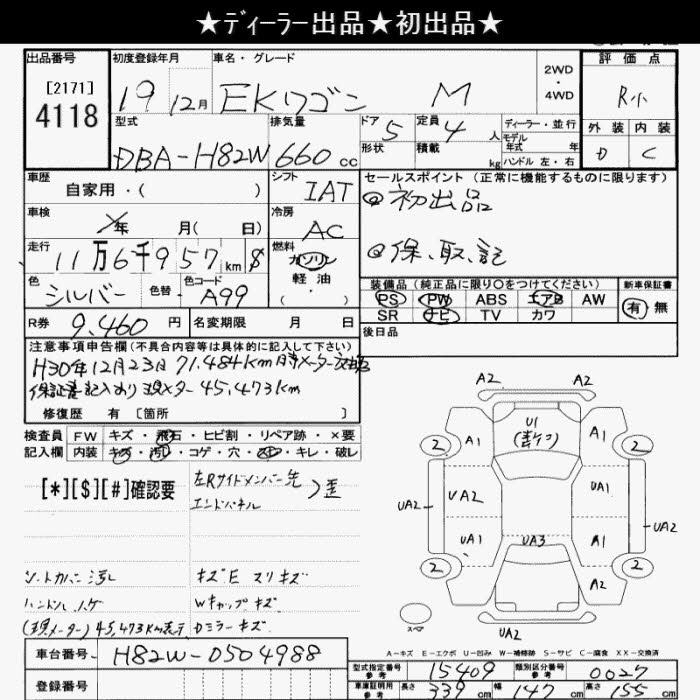 ★ディーラー出品★初出品★
出品番号 初度登録年月 車名・グレード 2WD・4WD 評価点
[2171] 4118 19 12月 EKワゴン M R小
型式 排気量 ドア 5 定員 4人 ディーラー・並行 外装 内装
形状 積載 kg モデル年式 年 D C
DBA-H82W 660cc ハンドル 左・右
車歴 自家用・( ) シフト IAT セールスポイント (正常に機能するものに限ります)
車検 年 月( 日) 冷房 AC 初出品
走行 11万6千957km $ 燃料 ガソリン 軽油 ・( ) 保、取、記
色 シルバー 色替 色コード A99
装備品 (純正品に限り○をつけてください) 新車保証書
PS PW ABS エアB AW 有 無
SR ナビ TV カワ
R券 9,460円 名変期限 月 日 後日品
注意事項申告欄(不具合内容等は具体的に記入して下さい)
H30年12月23日 71,484km時メーター交換
保証書記入あり 現メーター45,473km
修復歴 有 [箇所 ]
検査員 FW キズ・飛石・ヒビ割・リペア跡・×要
記入欄 内装 キズ・汚れ・コゲ・穴・・キレ・破レ
[*][$][#]確認要
左Rサイドメンバー先 歪
エンドパネル
シートカバー汚レ キズE スリキズ
ハンドルハゲ Wキャップキズ
(現メーター)45,473km表示 Dミラーキズ
A2 A2
U1
A1 A1
2 2
UA2 UA1
UA2 UA2
UA1 UA3 A1
2 2
A2
スペア
UA2
A-キズ E-エクボ U-凹み W-補修跡 S-サビ C-腐食 XX-交換済
車台番号 H82W-0504988
型式指定番号 参考 15409 類別区分番号 参考 0027
登録番号 車庫証明用 参考 長さ 339cm 幅 147cm 高さ 155cm